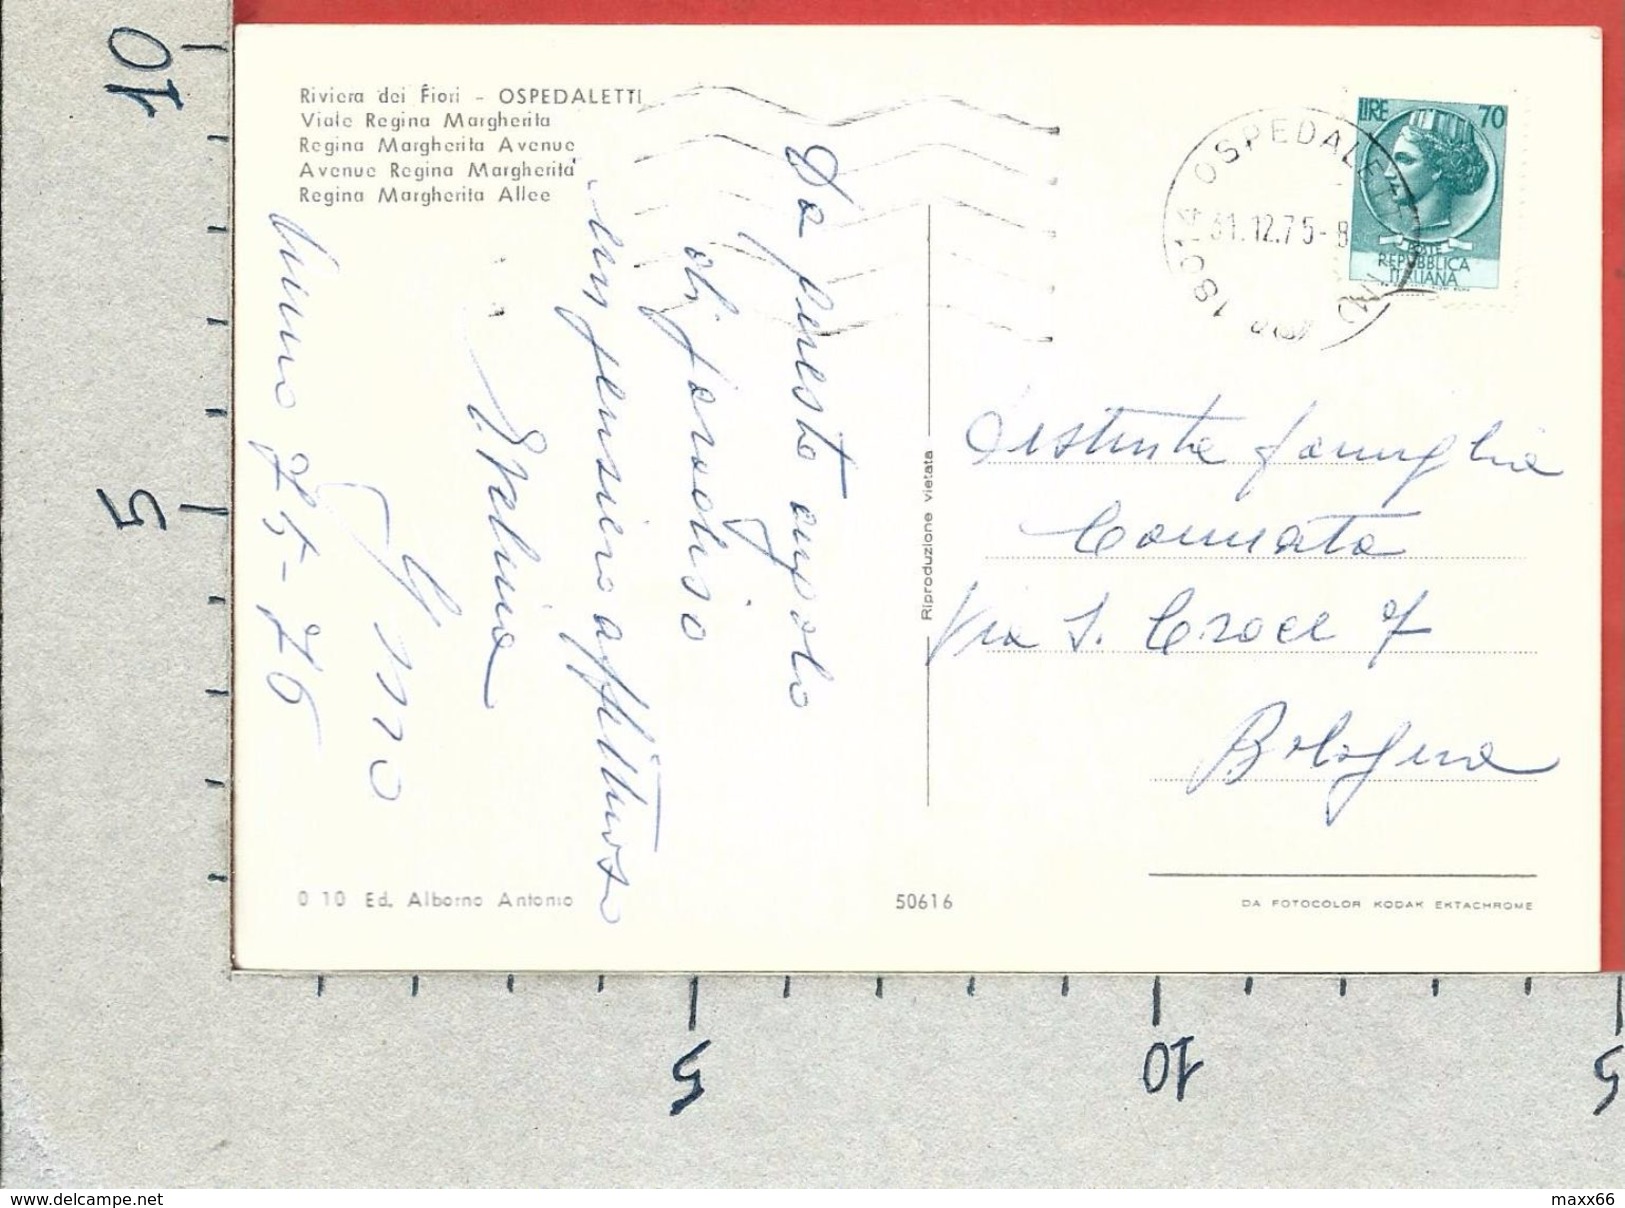 Riviera dei Fiori - OSPEDALETTI
Viale Regina Margherita
Regina Margherita Avenue
Avenue Regina Margherita
Regina Margherita Allee
LIRE 70
POSTE
REPUBBLICA
ITALIANA
18014 OSPEDALETTI
31.12.75-8
Da questo angolo
di paradiso
un pensiero affettuoso
Evelina
Gino
75-76
Distinta famiglia
Connata
Via S. Croce 7
Bologna
Riproduzione vietata
0 10 Ed. Alborno Antonio
50616
DA FOTOCOLOR KODAK EKTACHROME
10
5
5
10
5
www.delcampe.net
maxx66